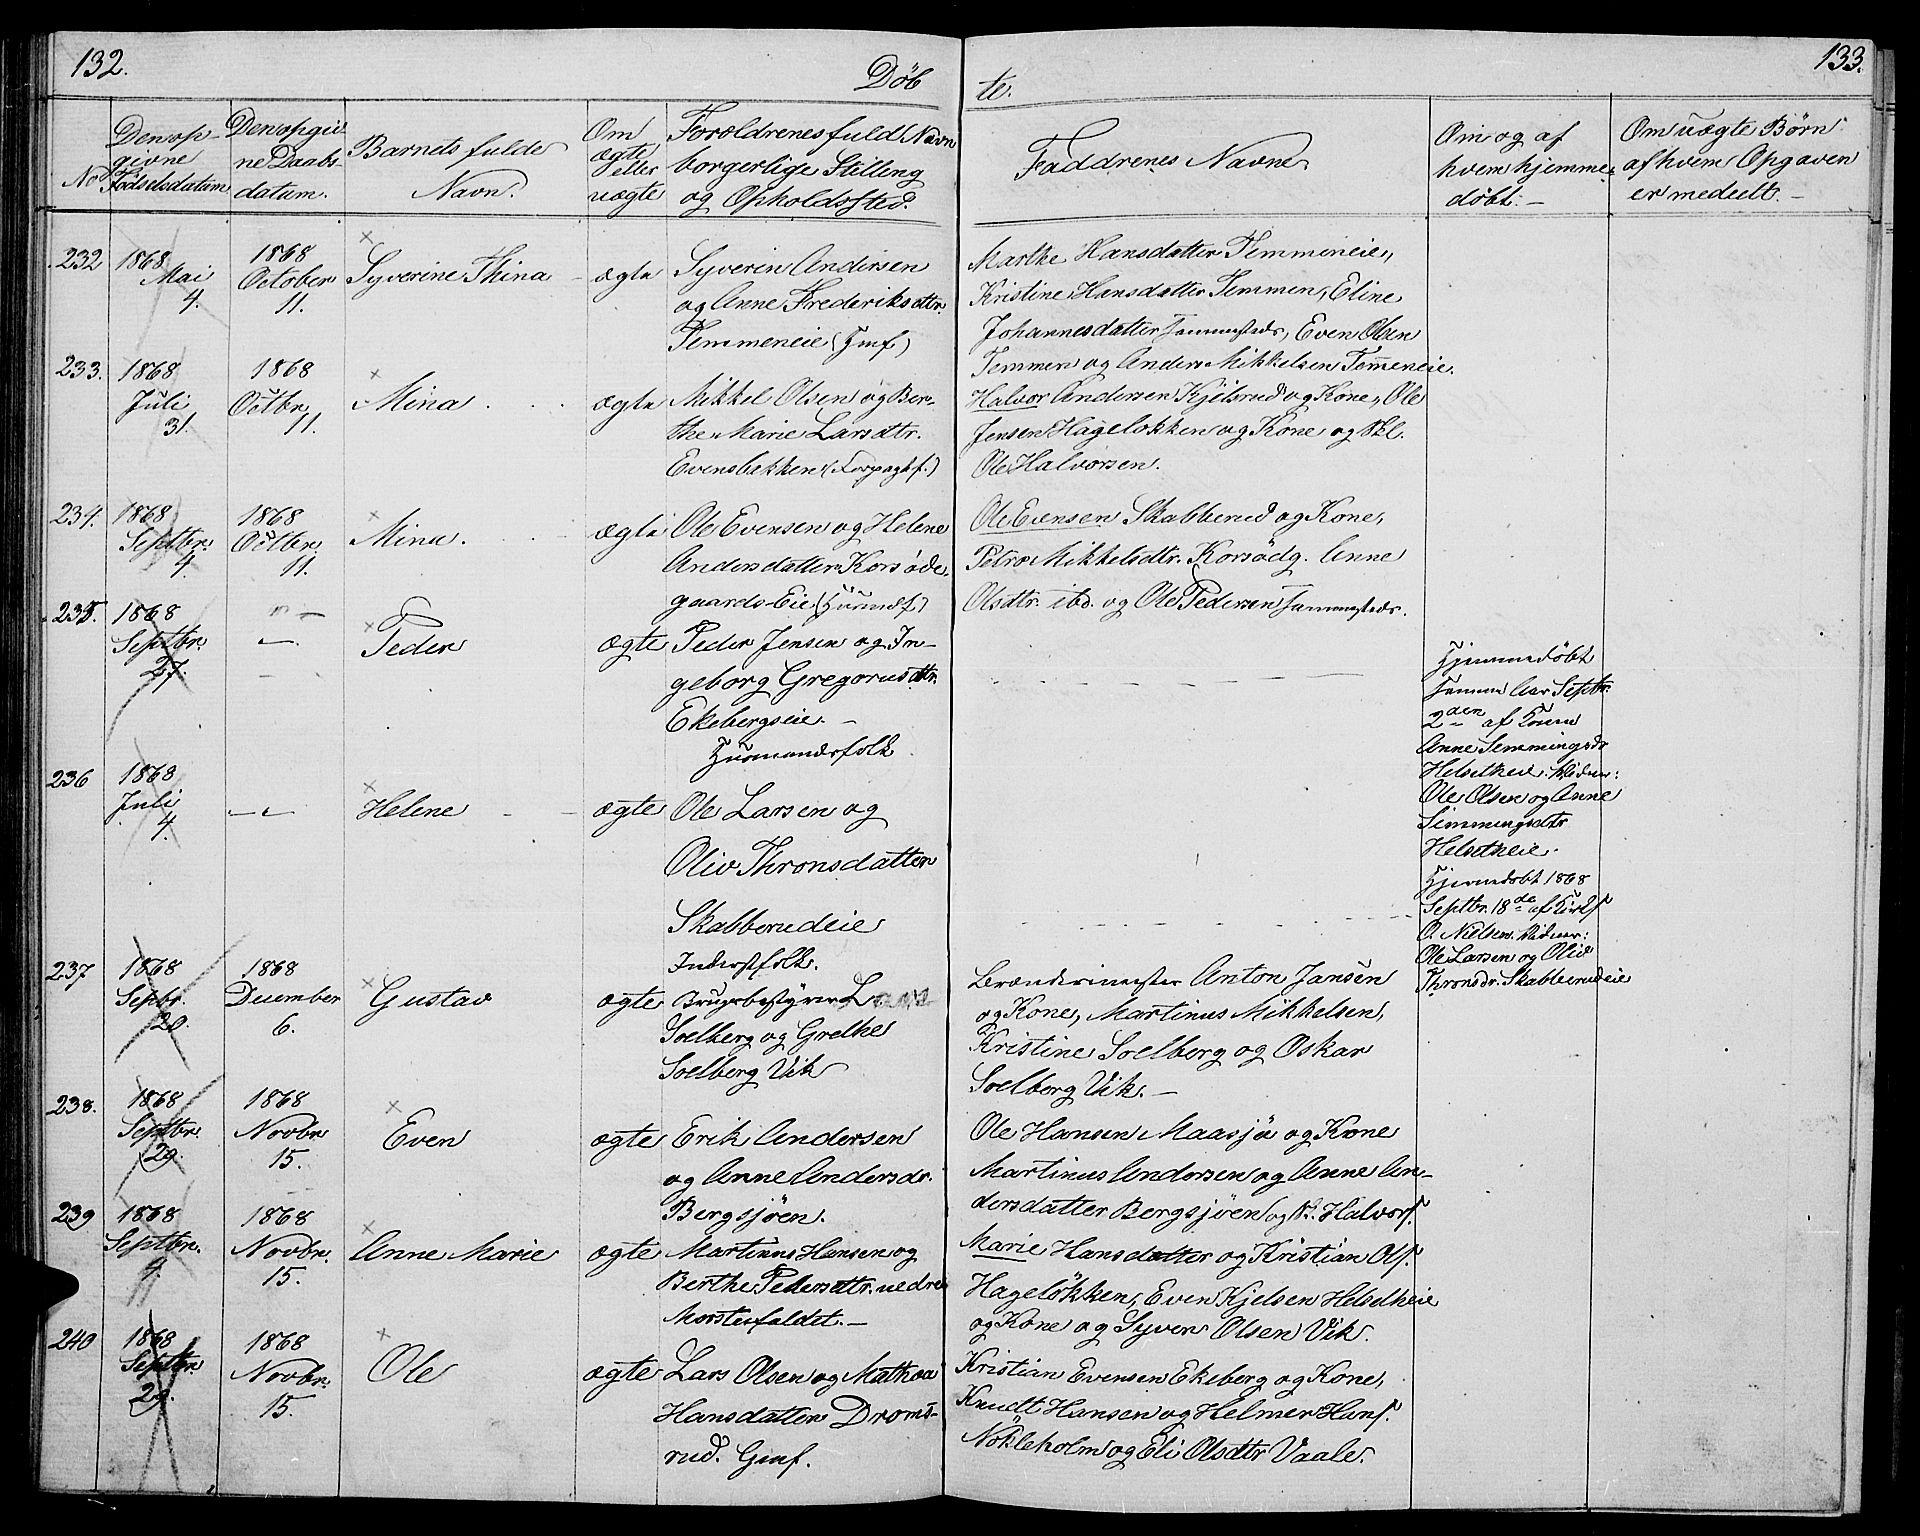 132.
Døb
te.
133.
No
Den op-
givne
Fødselsdatum
Den opgiv
ne Daabs
datum.
Barnets fulde
Navn.
Om
ægte
eller
uægte
Forældrenes fuld Navn
borgerlige Stilling
og Opholdssted.
Faddrenes Navne
Om og af
hvem hjemme
døbt. -
Om uægte Børn
af hvem Opgaven
er meddelt. -
232
1868
Mai
4.
1868
October
11.
Syverine Thina
ægte
Syverin Andersen
og Anne Frederiksdtr.
Temmeneie
Marthe Hansdatter Temmeneie,
Kristine Hansdatter Temmen, Eline
Johannesdatter sammesteds, Even Olsen
Temmen og Anders Mikkelsen Temmeneie.
233.
1868
Juli
31.
1868
Octbr.
11.
Mina
ægte
Mikkel Olsen og Ber-
the Marie Larsdtr.
Evensbekken
Halvor Andersen Kjelsrud og Kone, Ole
Jensen Hageløkken og Kone og
Ole Halvorsen.
234.
1868
Septbr.
4.
1868
Octbr.
11.
Mina.
ægte
Ole Evensen og Helene
Andersdatter Korsøde-
gaards-Eie (Huusmdf.)
Ole Evensen Skabberud og Kone,
Petra Mikkelsdtr. Korsödg. Anne
Olsdtr. ibd. og Ole Pedersen sammesteds.
235.
1868
Septbr.
27.
Peder
ægte
Peder Jensen og In-
geborg Gregoriusdtr.
Ekebergseie. -
Huusmandsfolk
Hjemmedøbt
samme Aar Septbr.
2den af Konen
Anne Semmingsdr
Helsetheie. Vidner:
Ole Olsen og Anne
Simmingsdtr
Helsetheie.
236
1868
Juli
4.
Helene
ægte
Ole Larsen og
Oliv Thronsdatter
Skabberudeie
Inderstfolk.
Hjemmedøbt 1868
Septbr. 18de af
O. Nielsen. Vidner:
Ole Larsen og Oliv
Thronsdr. Skabberudeie
237
1868
Sepbr.
20.
1868
December
6.
Gustav
ægte
Brugsbestyrer
Soelberg og Grethe
Soelberg Vik
Brænderimester Anton Jansen
og Kone, Martinus Mikkelsen,
Kristine Soelberg og Oskar
Soelberg Vik. -
238.
1868
Septbr.
29.
1868
Novbr
15.
Even
ægte
Erik Andersen
og Anne Andersdr.
Bergsjøen.
Ole Hansen Maasjø og Kone
Martinus Andersen og Anne An-
dersdatter Bergsjöen og Halvors.
239
1868
Septbr.
9.
1868
Novbr.
15.
Anne Marie
ægte
Martinus Hansen og
Berthe Pedersdtr. nedre
Morstufaldet. -
Marie Hansdatter og Kristian Ols.
Hageløkken, Even Kjelsen Helsetheie
og Kone og Syver Olsen Vik.
240
1868
Septbr.
29.
1868
Novbr.
15.
Ole
ægte
Lars Olsen og Mathea
Hansdatter Droms-
rud. Gmf.
Kristian Evensen Ekeberg og Kone,
Knudt Hansen og Helmer Hans.
Nökleholm og Eli Olsdtr Vaale.